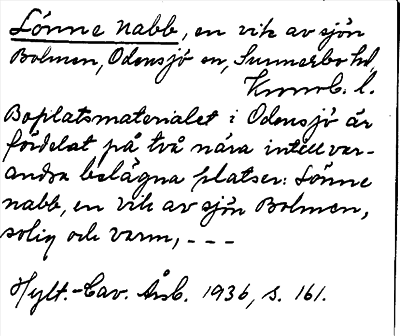 Lönne nabb, en vik av sjön
Bolmen, Odensjö sn, Sunnerbo hd,
Kronob. l.
Boplatsmaterialet i Odensjö är
fördelat på två nära intill var-
andra belägna platser: Lönne
nabb, en vik av sjön Bolmen,
solig och varm, - - -
Hylt.-Cav. Årsb. 1936, s. 161.